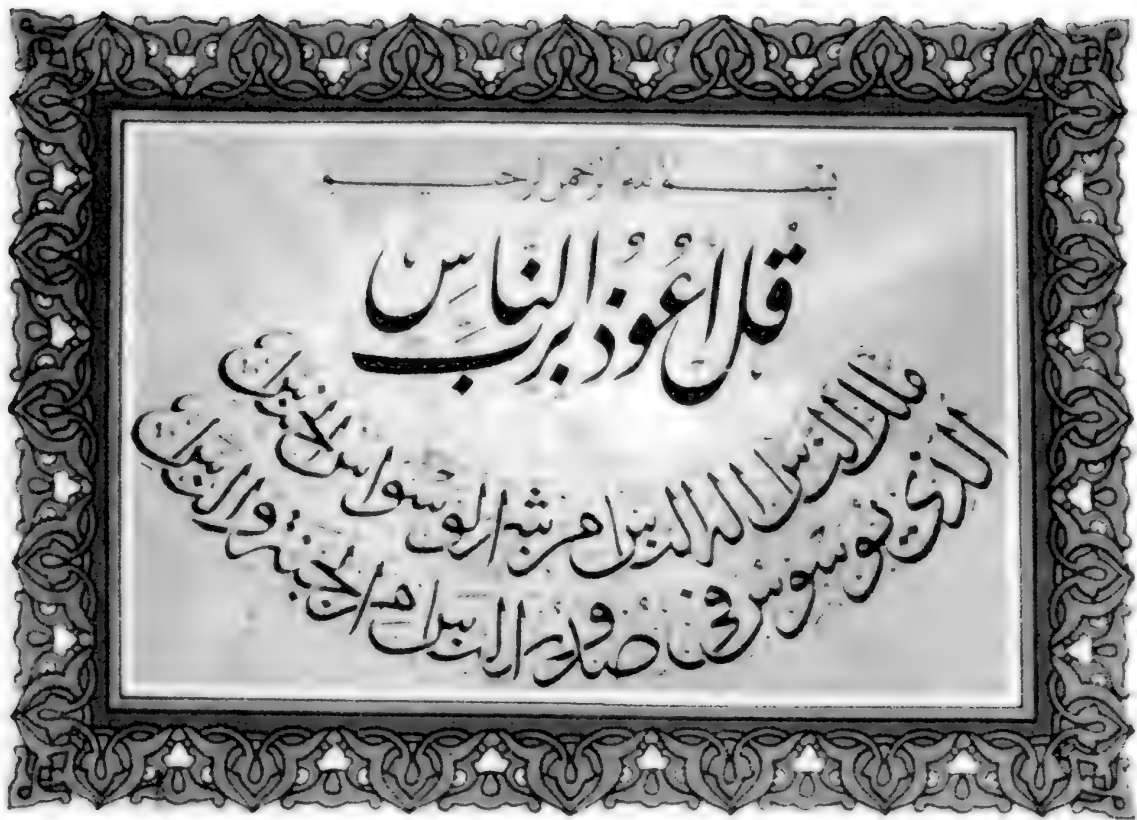 بسم الله الرحمن الرحيم
قُل اَعُوذُ بِرَبِّ النَّاسِ
ملك الناس اله الناس من شر الوسواس الخناس
الذي يوسوس في صدور الناس من الجنة والناس